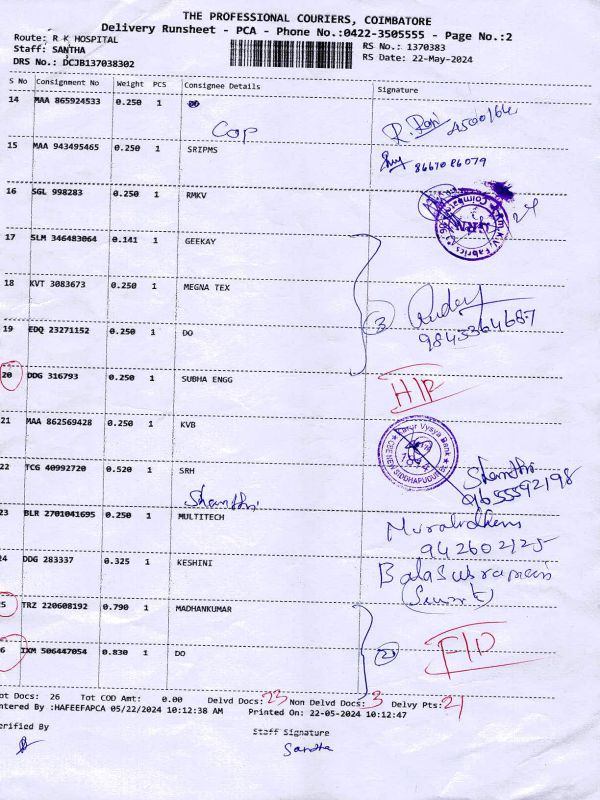 THE PROFESSIONAL COURIERS, COIMBATORE
Delivery Runsheet - PCA - Phone No.:0422-3505555 - Page No.:2
Route: R K HOSPITAL
Staff: SANTHA
RS No.: 1370383
DRS No.: DCJB137038302
RS Date: 22-May-2024
S No Consignment No Weight PCS Consignee Details Signature
14 MAA 865924533 0.250 1
Cop
15 MAA 943495465 0.250 1 SRIPMS
8667086079
16 SGL 998283 0.250 1 RMKV
17 SLM 346483064 0.141 1 GEEKAY
18 KVT 3083673 0.250 1 MEGNA TEX
3
9843364687
19 EDQ 23271152 0.250 1 DO
20 DDG 316793 0.250 1 SUBHA ENGG
21 MAA 862569428 0.250 1 KVB
Karur Vysya Bank
22 TCG 40992720 0.520 1 SRH
Shanthi
Shanthi
9655592198
23 BLR 2701041695 0.250 1 MULTITECH
942602125
24 DDG 283337 0.325 1 KESHINI
Balasubramani
25 TRZ 220608192 0.790 1 MADHANKUMAR
2
26 IXM 506447054 0.830 1 DO
Tot Docs: 26 Tot COD Amt: 0.00 Delvd Docs: 23 Non Delvd Docs: 3 Delvy Pts: 21
Entered By :HAFEEFAPCA 05/22/2024 10:12:38 AM Printed On: 22-05-2024 10:12:47
Verified By
Staff Signature
Santha